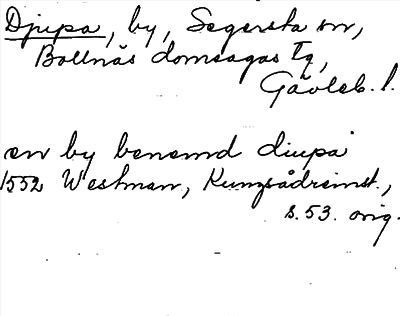 Djupa, by, Segersta sn,
Bollnäs domsagas tg,
Gävleb. l.
en by benemd diupa
1552 Westman, Kungsådreinst.,
s. 53. orig.